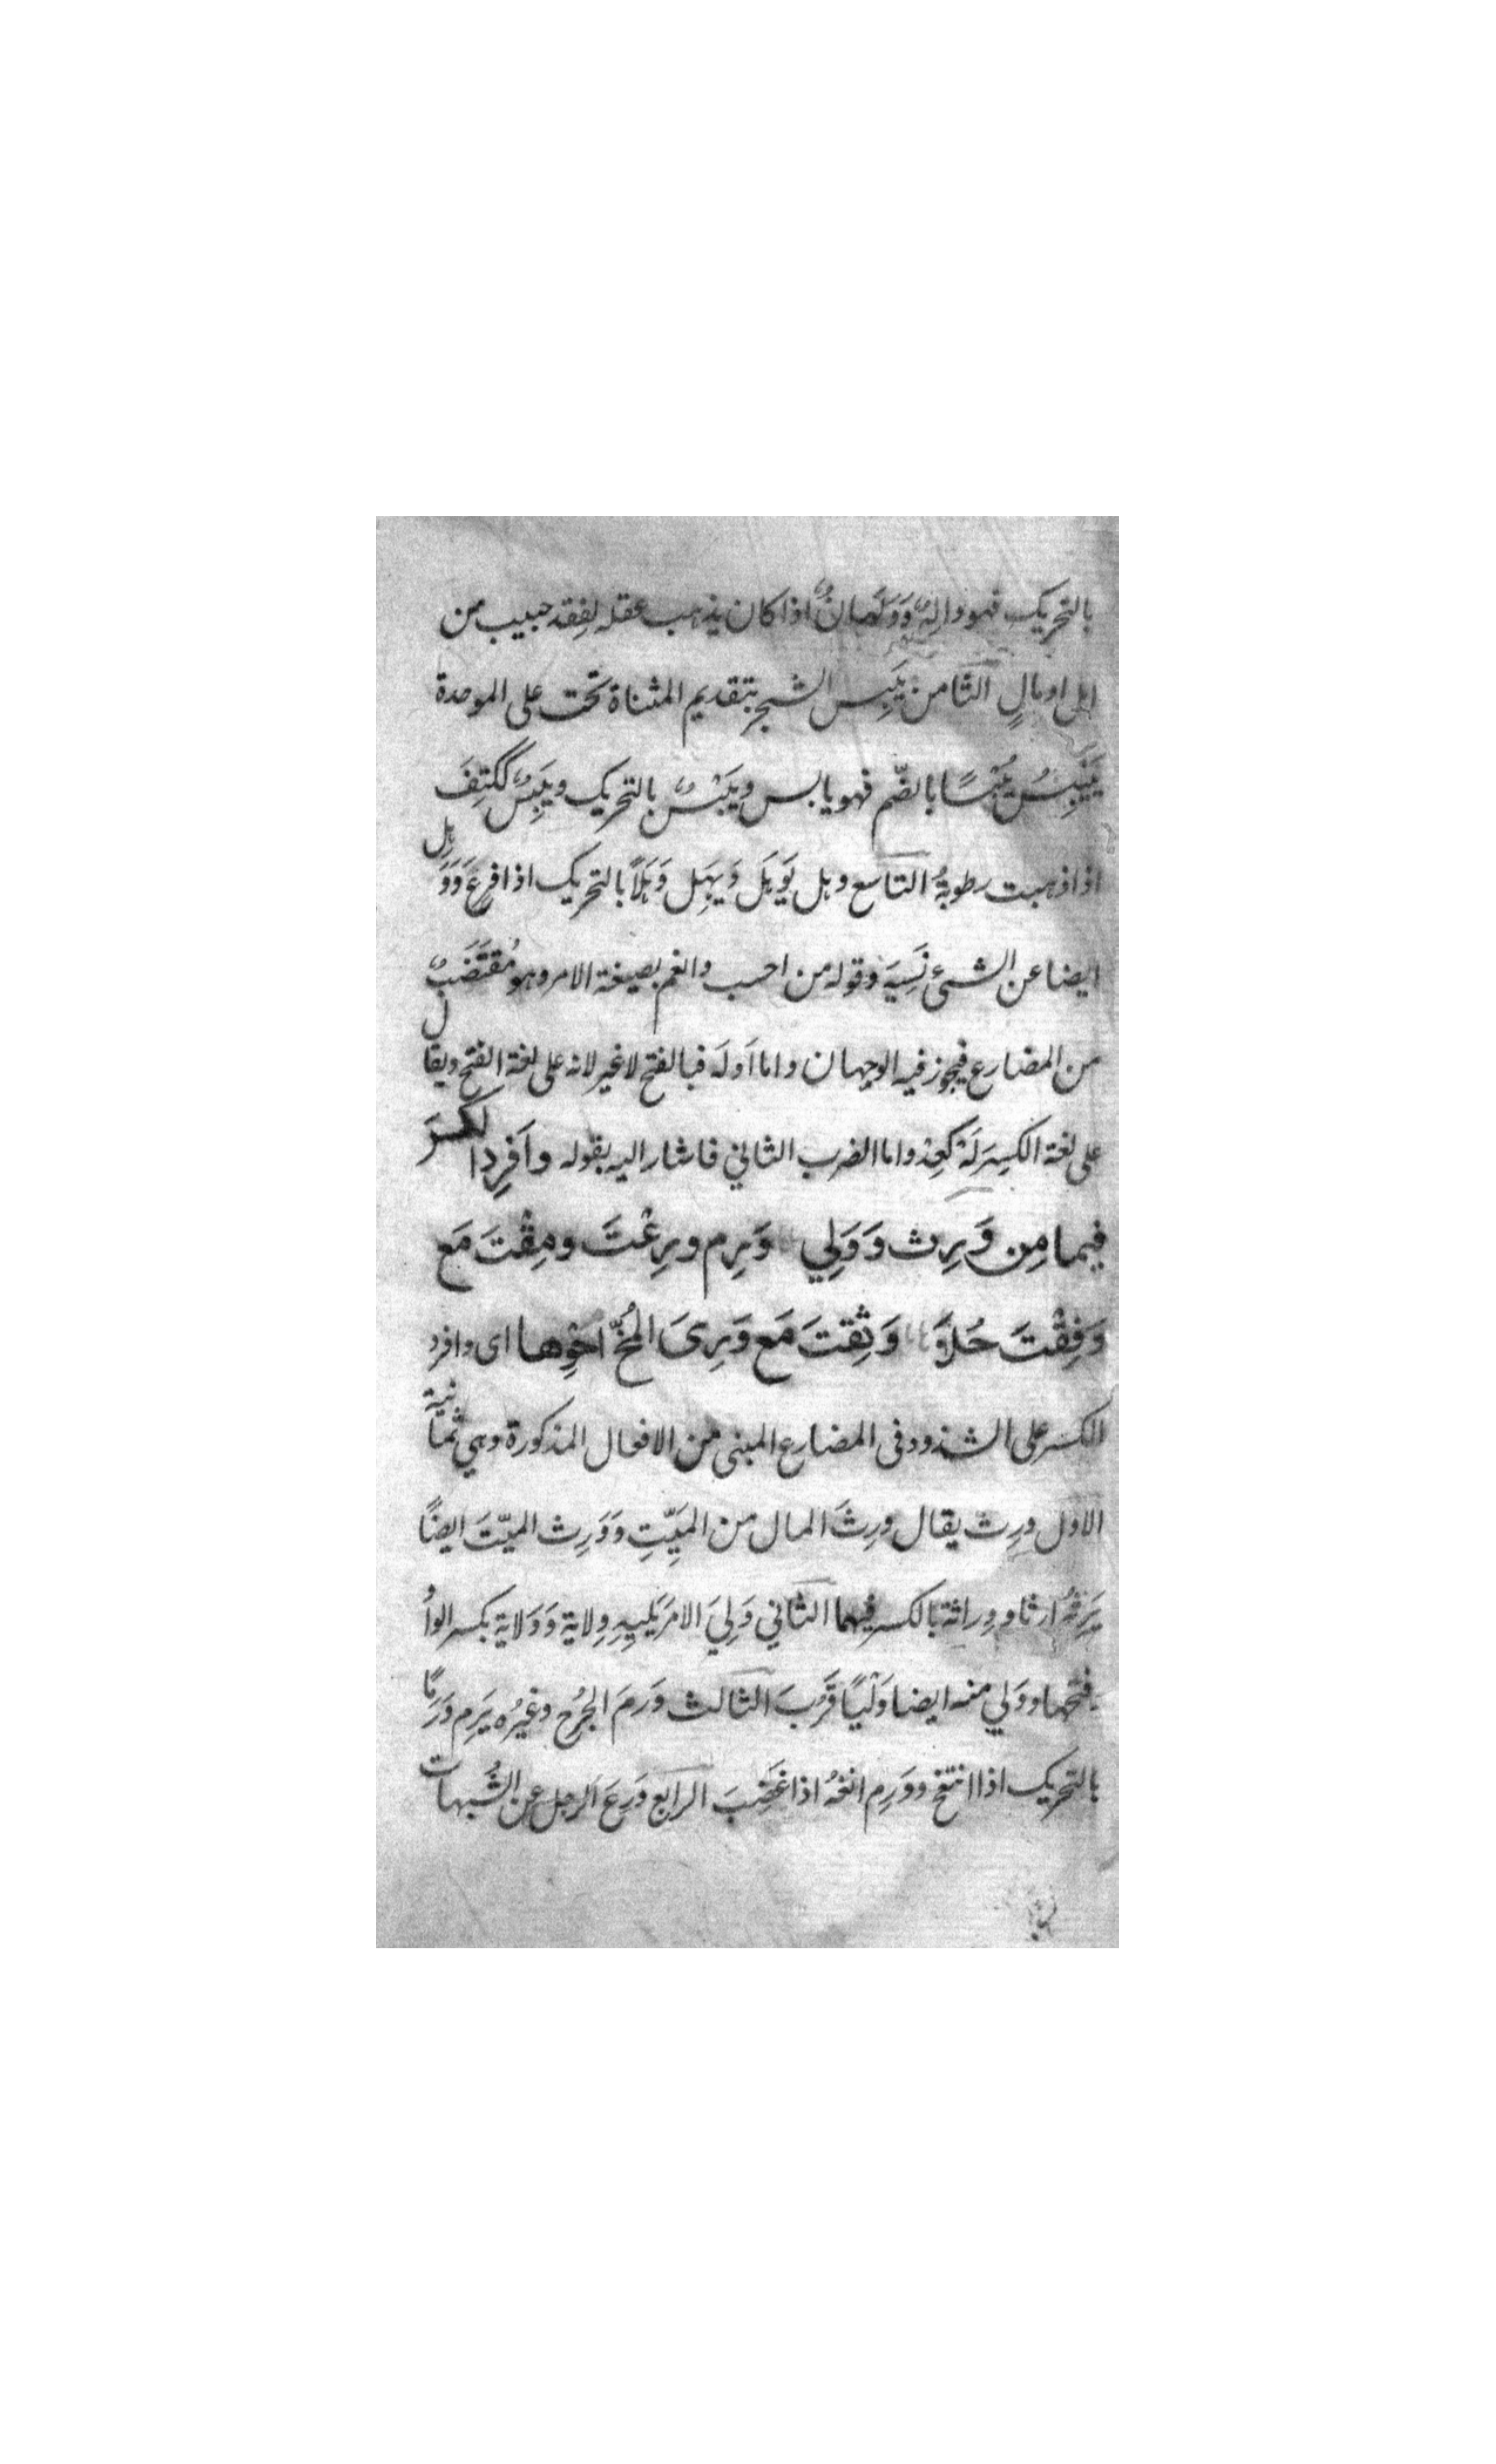 بالتحريك فهو والِهٌ وَوَلَهانٌ اذا كان يذهب عقله لفِقد حبيب من
اهل او مالٍ الثامن يَبِس الشجر بتقديم المثناة تحت على الموحدة
يَيْبِسُ يُبْسًا بالضّم فهو يابس ويَبَسٌ بالتحريك ويَبِسٌ ككتِفَ
اذا ذهبت رطوبةُ التاسع وهل يَوْهَل وَيَهِل وَهَلاً بالتحريك اذا فزِعَ وَوَهِل
ايضا عن الشئ نَسِيَه وقوله من احسب وانعم بصيغة الامر وهو مُقتَضَبٌ
من المضارع فيجوز فيه الوجهان واما اَولَه فبالفتح لا غير لانه على لغة الفتح ويقال
على لغة الكسر لَهْ كَعِدْ واما الضرب الثاني فاشار اليه بقوله واَفرِد الكسرَ
فيما مِن وَرِث وَوَلِي وَرِم ورِعْتَ ومِقْتَ مَع
وَفِقْتَ حُلاًَ وَثِقتَ مَع وَرِىَ المُخّ احْوِها اى وافرد
الكسر على الشذوذ فى المضارع المبنى من الافعال المذكورة وهي ثمانية
الاول ورِث يقال ورِثَ المال من المَيِّتِ وَوَرِث الميّتَ ايضًا
يَرِثهُ ارثا ووِراثة بالكسر فيهما الثاني وَلِيَ الامرَ يَلِيهِ وِلاية وَوَلاية بكسر الواو
وفتحها ووَلي منه ايضا وَلْيًا قَرُبَ الثالث وَرمَ الجُرح وغيرُه يَرِم وَرَمًا
بالتحريك اذا انتفخ ووَرِم انفُه اذا غَضِبَ الرابع وَرِعَ الرجل عن الشُبهات